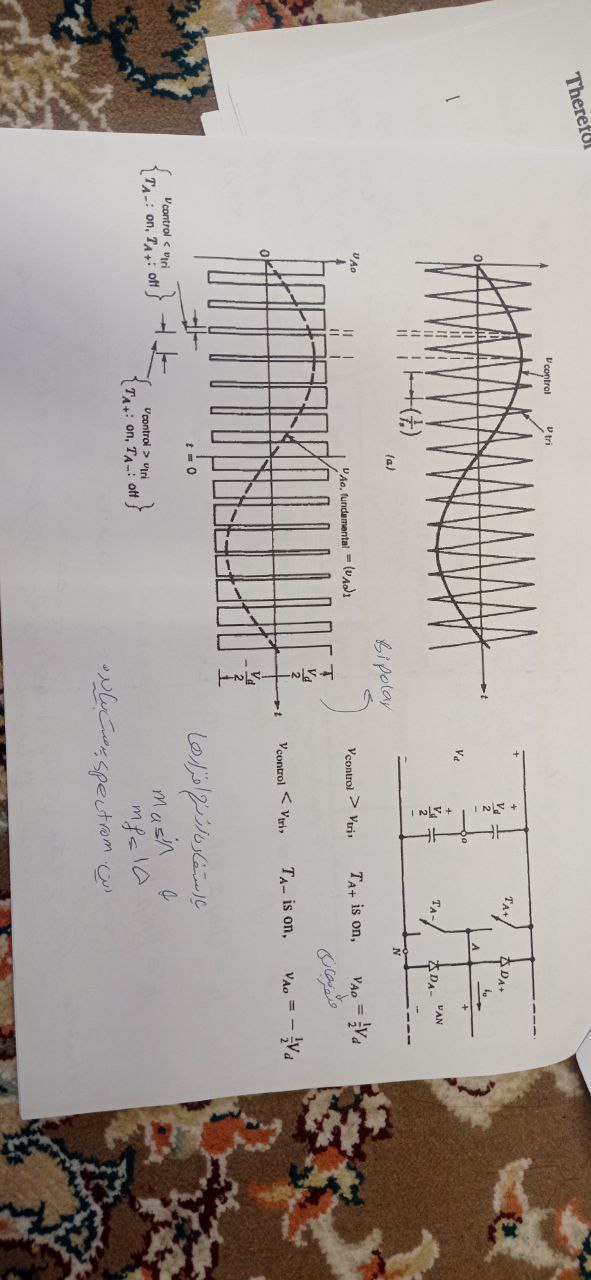 Therefor
v_control
v_tri
0
t
(1/f_s)
(a)
v_Ao
v_Ao, fundamental = (v_Ao)1
V_d/2
0
t
-V_d/2
t = 0
{ v_control < v_tri
T_A-: on, T_A+: off }
{ v_control > v_tri
T_A+: on, T_A-: off }
+
V_d
-
+
V_d/2
-
o
+
V_d/2
-
T_A+
D_A+
A
i_o
+
T_A-
D_A-
v_AN
-
N
Bipolar
v_control > v_tri, T_A+ is on, v_Ao = ½V_d
v_control < v_tri, T_A- is on, v_Ao = -½V_d
با استفاده از نرم افزارها
mf = 15
spectrom